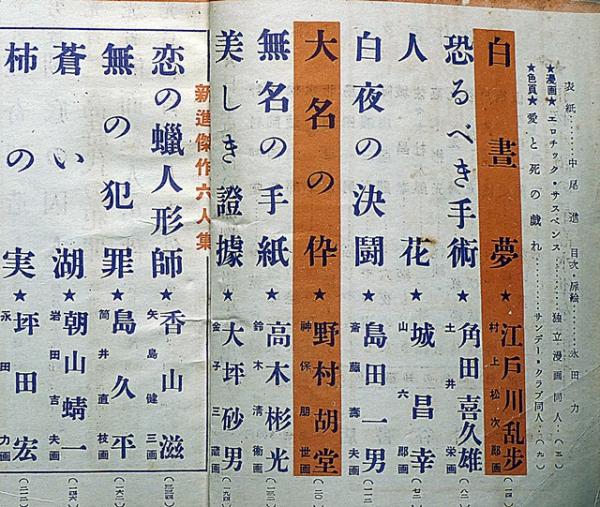 表紙………中尾進 目次・扉絵………永田力
★漫画★エロチック・サスペンス………独立漫画同人…(五)
★色頁★愛と死の戯れ………サンデー・クラブ同人…(九)
白晝夢★江戸川乱歩 村上松次郎画(一四)
恐るべき手術★角田喜久雄 土井栄画(八二)
人花★城昌幸 山六郎画(七二)
白夜の決闘★島田一男 斎藤寿夫画(一一二)
大名の倅★野村胡堂 神保朋世画(一〇)
無名の手紙★高木彬光 鈴木清衛画(一三二)
美しき證據★大坪砂男 金子三蔵画(一九四)
新進傑作六人集
恋の蠟人形師★香山滋 矢島健三画
無の犯罪★島久平 筒井直枝画(一六二)
蒼い湖★朝山蜻一 岩田吉夫画(一四六)
柿の実★坪田宏 永田力画(二一二)